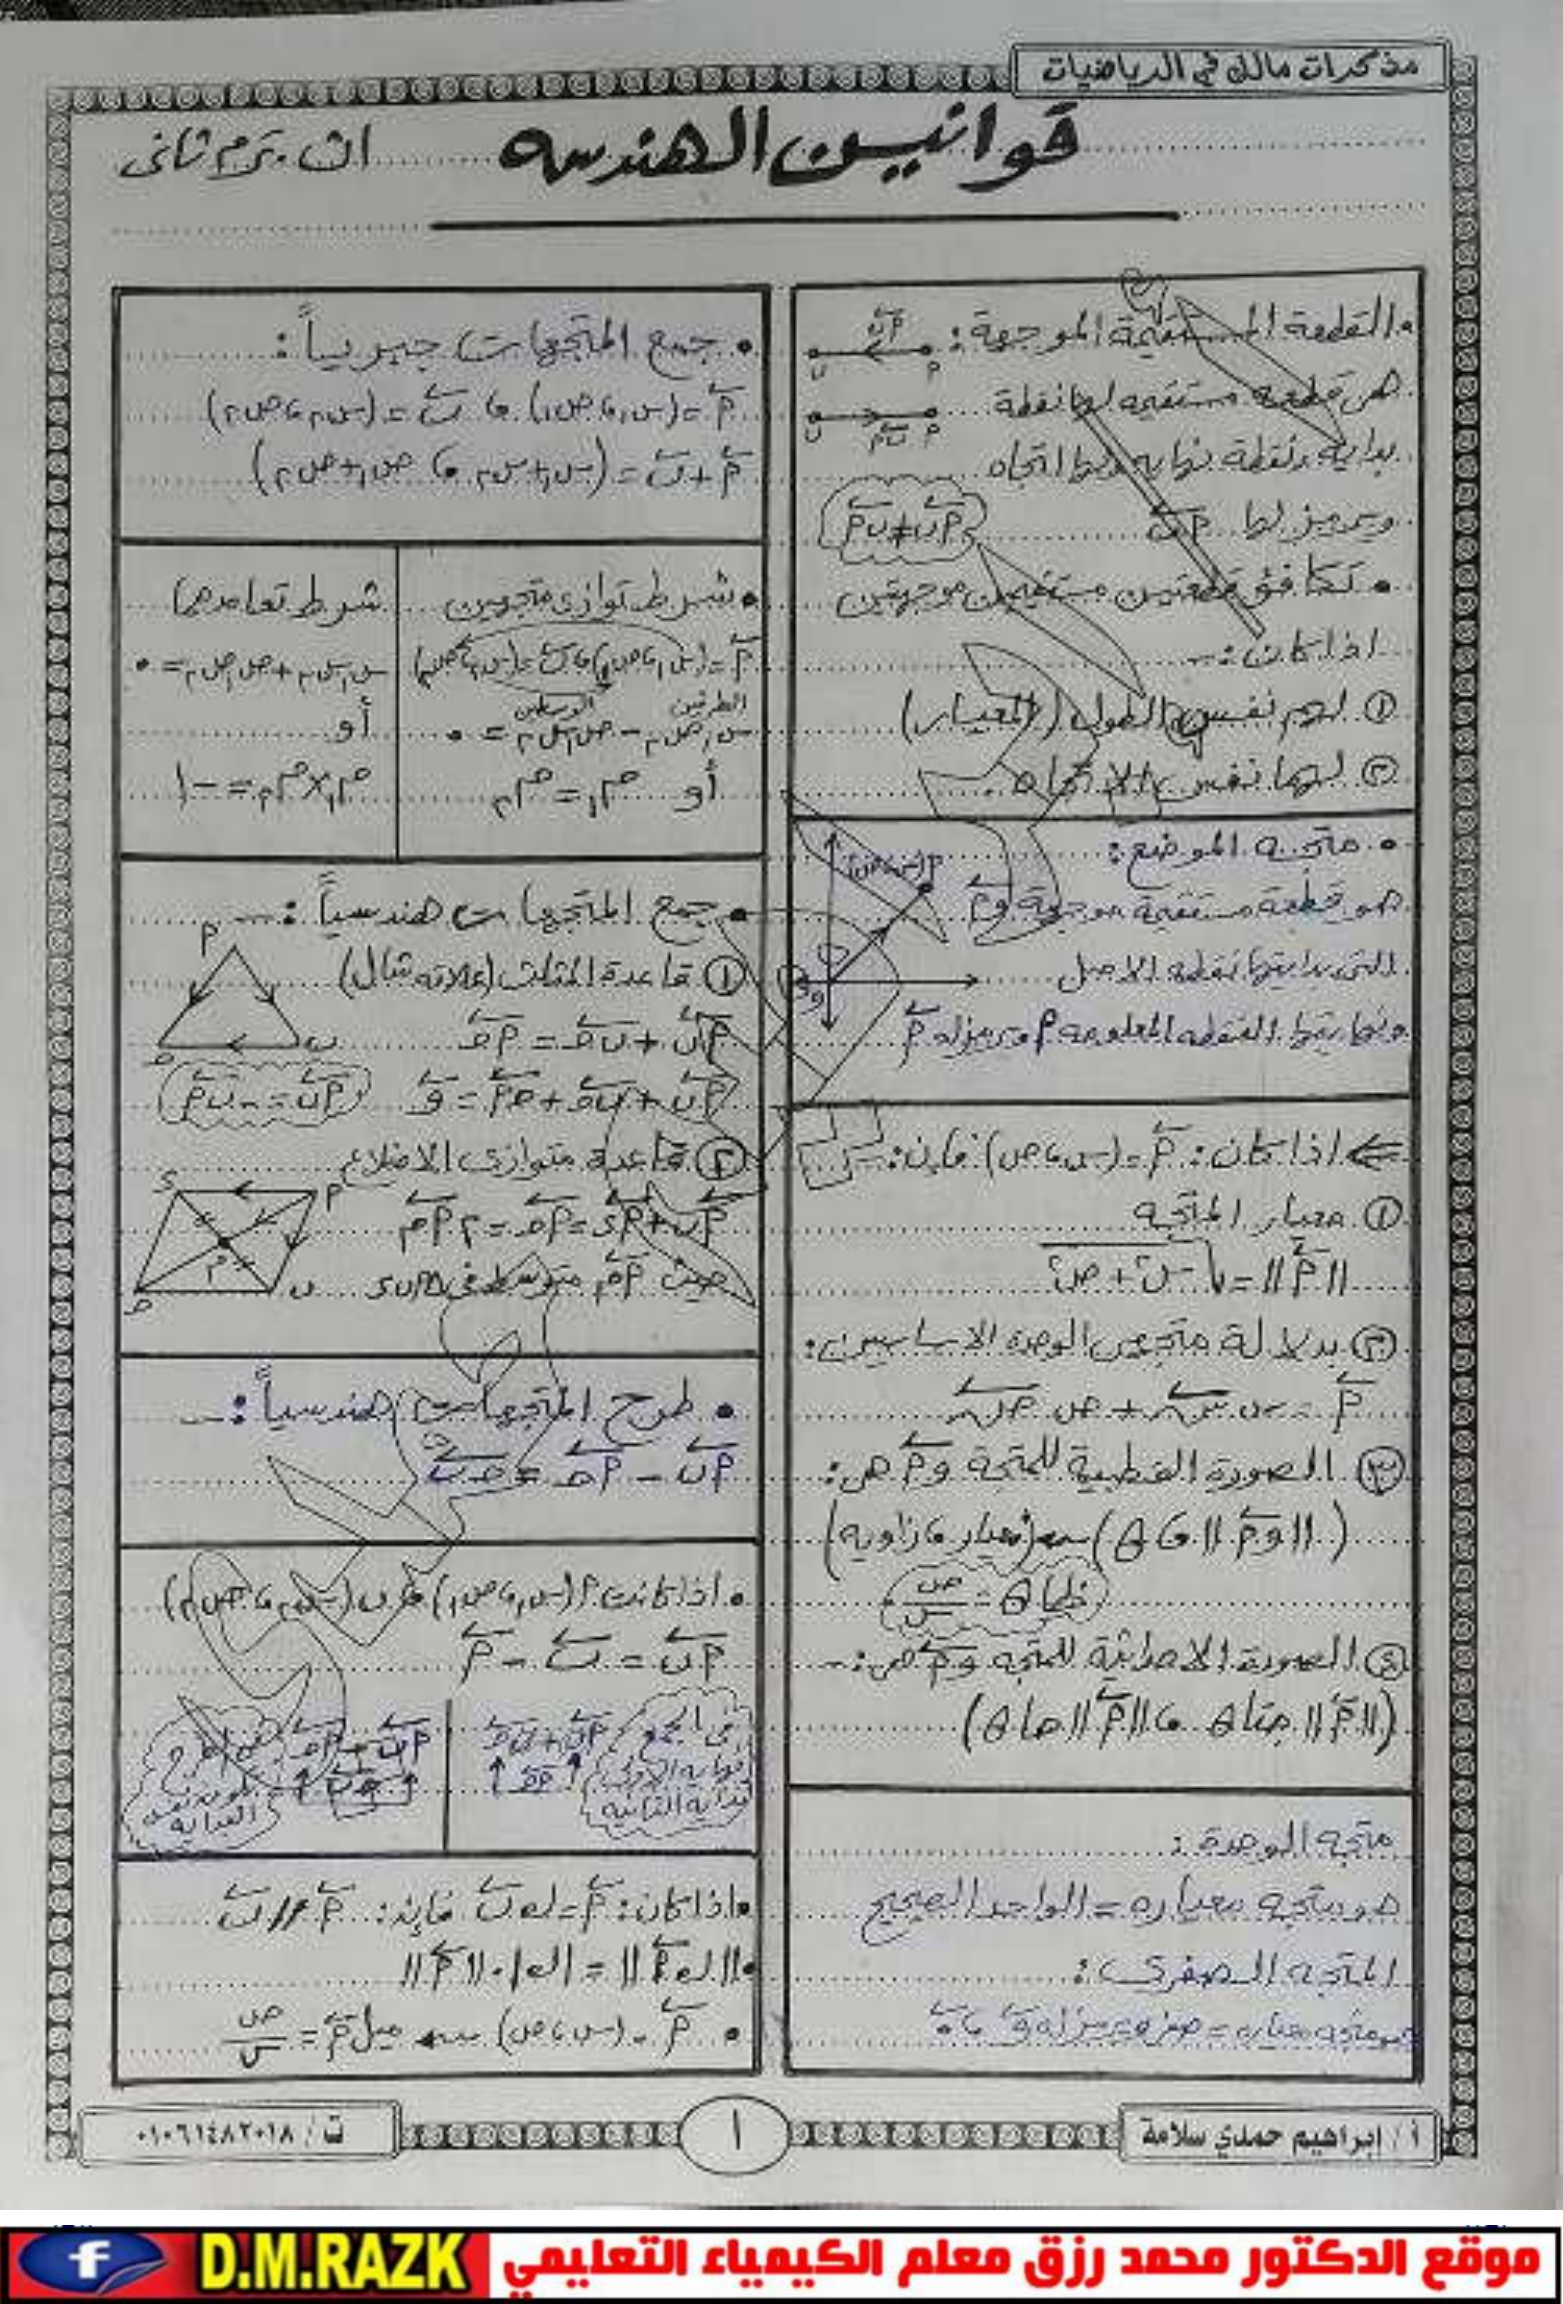 مذكرات مالك في الرياضيات
قوانين الهندسه
اث. ترم ثانى
• القطعة المستقيمة الموجهة:
هى قطعه مستقيمه لها نقطة
بدايه ونقطة نهايه ولها اتجاه
ويرمز لها أب
أب ≠ بأ
• تكافؤ قطعتين مستقيمتين موجهتين
اذا كان:-
① لهم نفس الطول (المعيار)
② لهما نفس الاتجاه
• متجه الموضع:
هو قطعة مستقيمة موجهة وأ
التى بدايتها نقطه الاصل
ونهايتها النقطه المعلومه أ ويرمز له أ
اذا كان: أ = (س، ص) فإن:
① معيار المتجه
||أ|| = √س² + ص²
② بدلالة متجهى الوحده الاساسيين:
أ = س س + ص ص
③ الصورة القطبية للمتجة وأ هى:
(||وأ||، θ) (معيار، زاويه)
ظا θ = ص/س
④ الصورة الاحداثية للمتجه وأ هى:-
(||أ|| جتا θ، ||أ|| جا θ)
متجه الوحدة:
هو متجه معياره = الواحد الصحيح
المتجه الصفرى:
هو متجه معياره = صفر ويرمز له و، 0
• جمع المتجهات جبرياً:
أ = (س₁، ص₁)، ب = (س₂، ص₂)
أ + ب = (س₁+س₂، ص₁+ص₂)
• شرط توازى متجهين
أ = (س₁، ص₁)، ب = (س₂، ص₂)
الطرفين الوسطين
س₁ ص₂ - ص₁ س₂ = ٠
أو م₁ = م₂
شرط تعامدها
س₁ س₂ + ص₁ ص₂ = ٠
أو
م₁ × م₂ = -١
• جمع المتجهات هندسياً:-
① قاعدة المثلث (علاقه شال)
أب + بح = أح
أب + بح + حأ = و
أب = -بأ
② قاعدة متوازى الاضلاع
أب + أد = أح = ٢ أم
حيث أم متوسط فى Δ أب د
• طرح المتجهات هندسياً:-
أب - أح = حب
• اذا كانت أ (س₁، ص₁)، ب (س₂، ص₂)
أب = ب - أ
فى الجمع
نهايه الاولى
بداية الثانيه
أب + بح
أح
أب - أح
حب
فى الطرح
نفس
البدايه
• اذا كان: أ = ك ب فإن: أ // ب
• ||ك أ|| = |ك| . ||أ||
• أ = (س، ص) ميل أ = ص/س
أ / إبراهيم حمدي سلامة
١
ت / ٠١٠٦١٤٨٢٠١٨
D.M.RAZK
موقع الدكتور محمد رزق معلم الكيمياء التعليمي